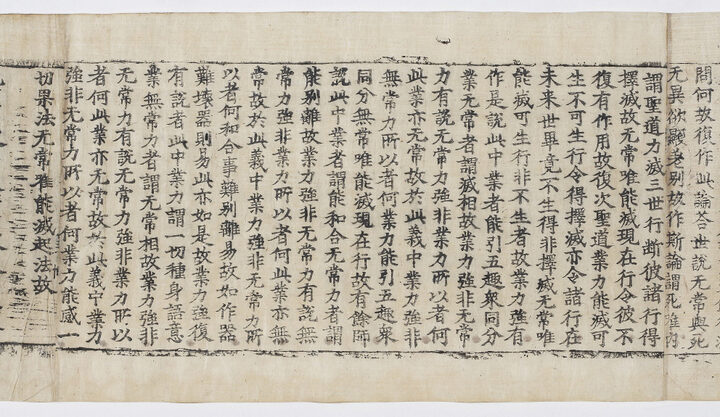 問何故復作此論荅世說无常與死
无異欲顯差別故作斯論謂死
謂聖道力滅三世行斷彼諸行得
擇滅故无常唯能滅現在行令彼不
復有作用故復次聖道業力能滅可
生不可生行令得擇滅亦令諸行在
未來世畢竟不生得非擇滅无常唯
能滅可生行非不生者故業力強有
作是說此中業者能引五趣衆同分
業无常者謂滅相故業力強非无常
力有說无常力強非業力所以者何
此業亦无常故於此義中業力強非
無常力所以者何業力能引五趣衆
同分無常唯能滅現在行故有餘師
說此中業者謂能和合无常力者謂
能別離故業力強非无常力有說無
常力強非業力所以者何此業亦無
常故於此義中業力強非无常力所
以者何和合事難別離易故如作器
難壞器則易此亦如是故業力強復
有說者此中業力謂一切種身語意
業無常力者謂无常相故業力強非
无常力有說无常力強非業力所以
者何此業亦无常故於此義中業力
強非无常力所以者何業力能感一
切果法无常唯能滅起法故